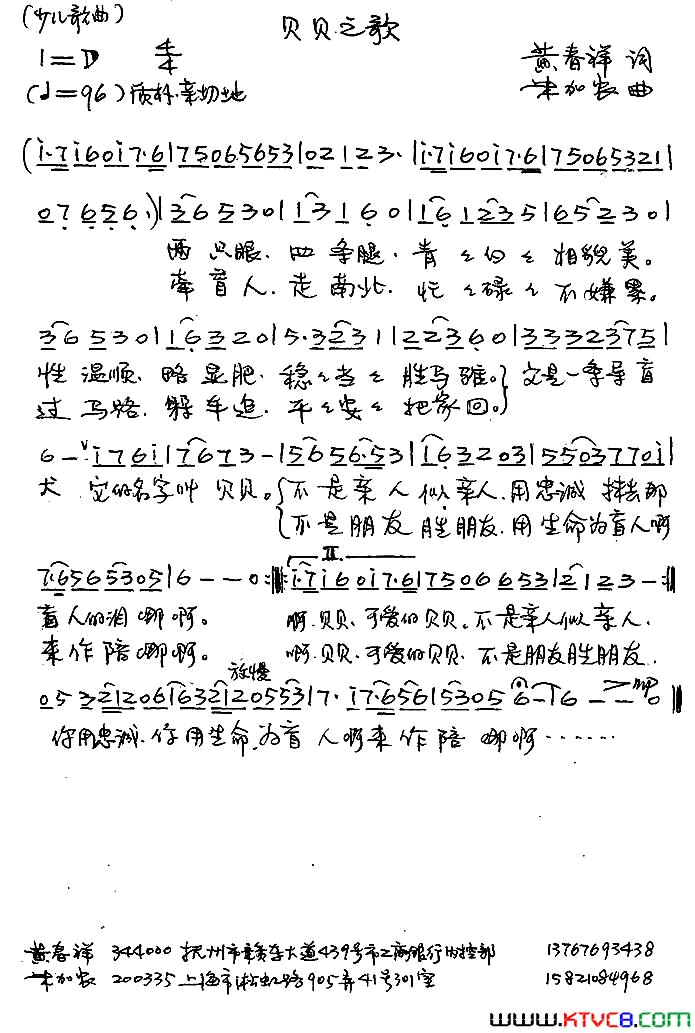 (少儿歌曲)
贝贝之歌
1=D 4/4
黄春祥 词
(♩=96) 质朴.亲切地
朱加农 曲
(i·7i60i7·6|75065653|02123·|i·7i60i7·6|75065321|
07656·)|36530|13160|161235|65230|
两只眼、四条腿、青々白々相貌美。
牵盲人、走南北、忙々碌々不嫌累。
36530|16320|5·3231|22360|3332375|
性温顺、略显肥、稳々当々胜马骓。 又是一季导盲
过马路、躲车追、平々安々把家回。
6-i76i|7673-|5656·53|163203|5503770i|
犬 它的名字叫贝贝。 不是亲人似亲人、用忠诚 抹去那
不是朋友胜朋友、用生命为盲人啊
7·6565305|6---0:‖:i·7i60i7·6|75066553|2123-:‖
II.
盲人的泪哪啊。 啊.贝贝、可爱的贝贝。不是亲人似亲人、
来作陪哪啊。 啊.贝贝、可爱的贝贝、不是朋友胜朋友、
放慢
053212061632120553|7·i7·656|53056-|6--0‖
你用忠诚、你用生命、为盲人啊来作陪哪啊……
黄春祥 344000 抚州市赣东大道439号市工商银行内控部 13767693438
朱加农 200335 上海市淞虹路905弄41号301室 15821084968
www.KTVC8.com